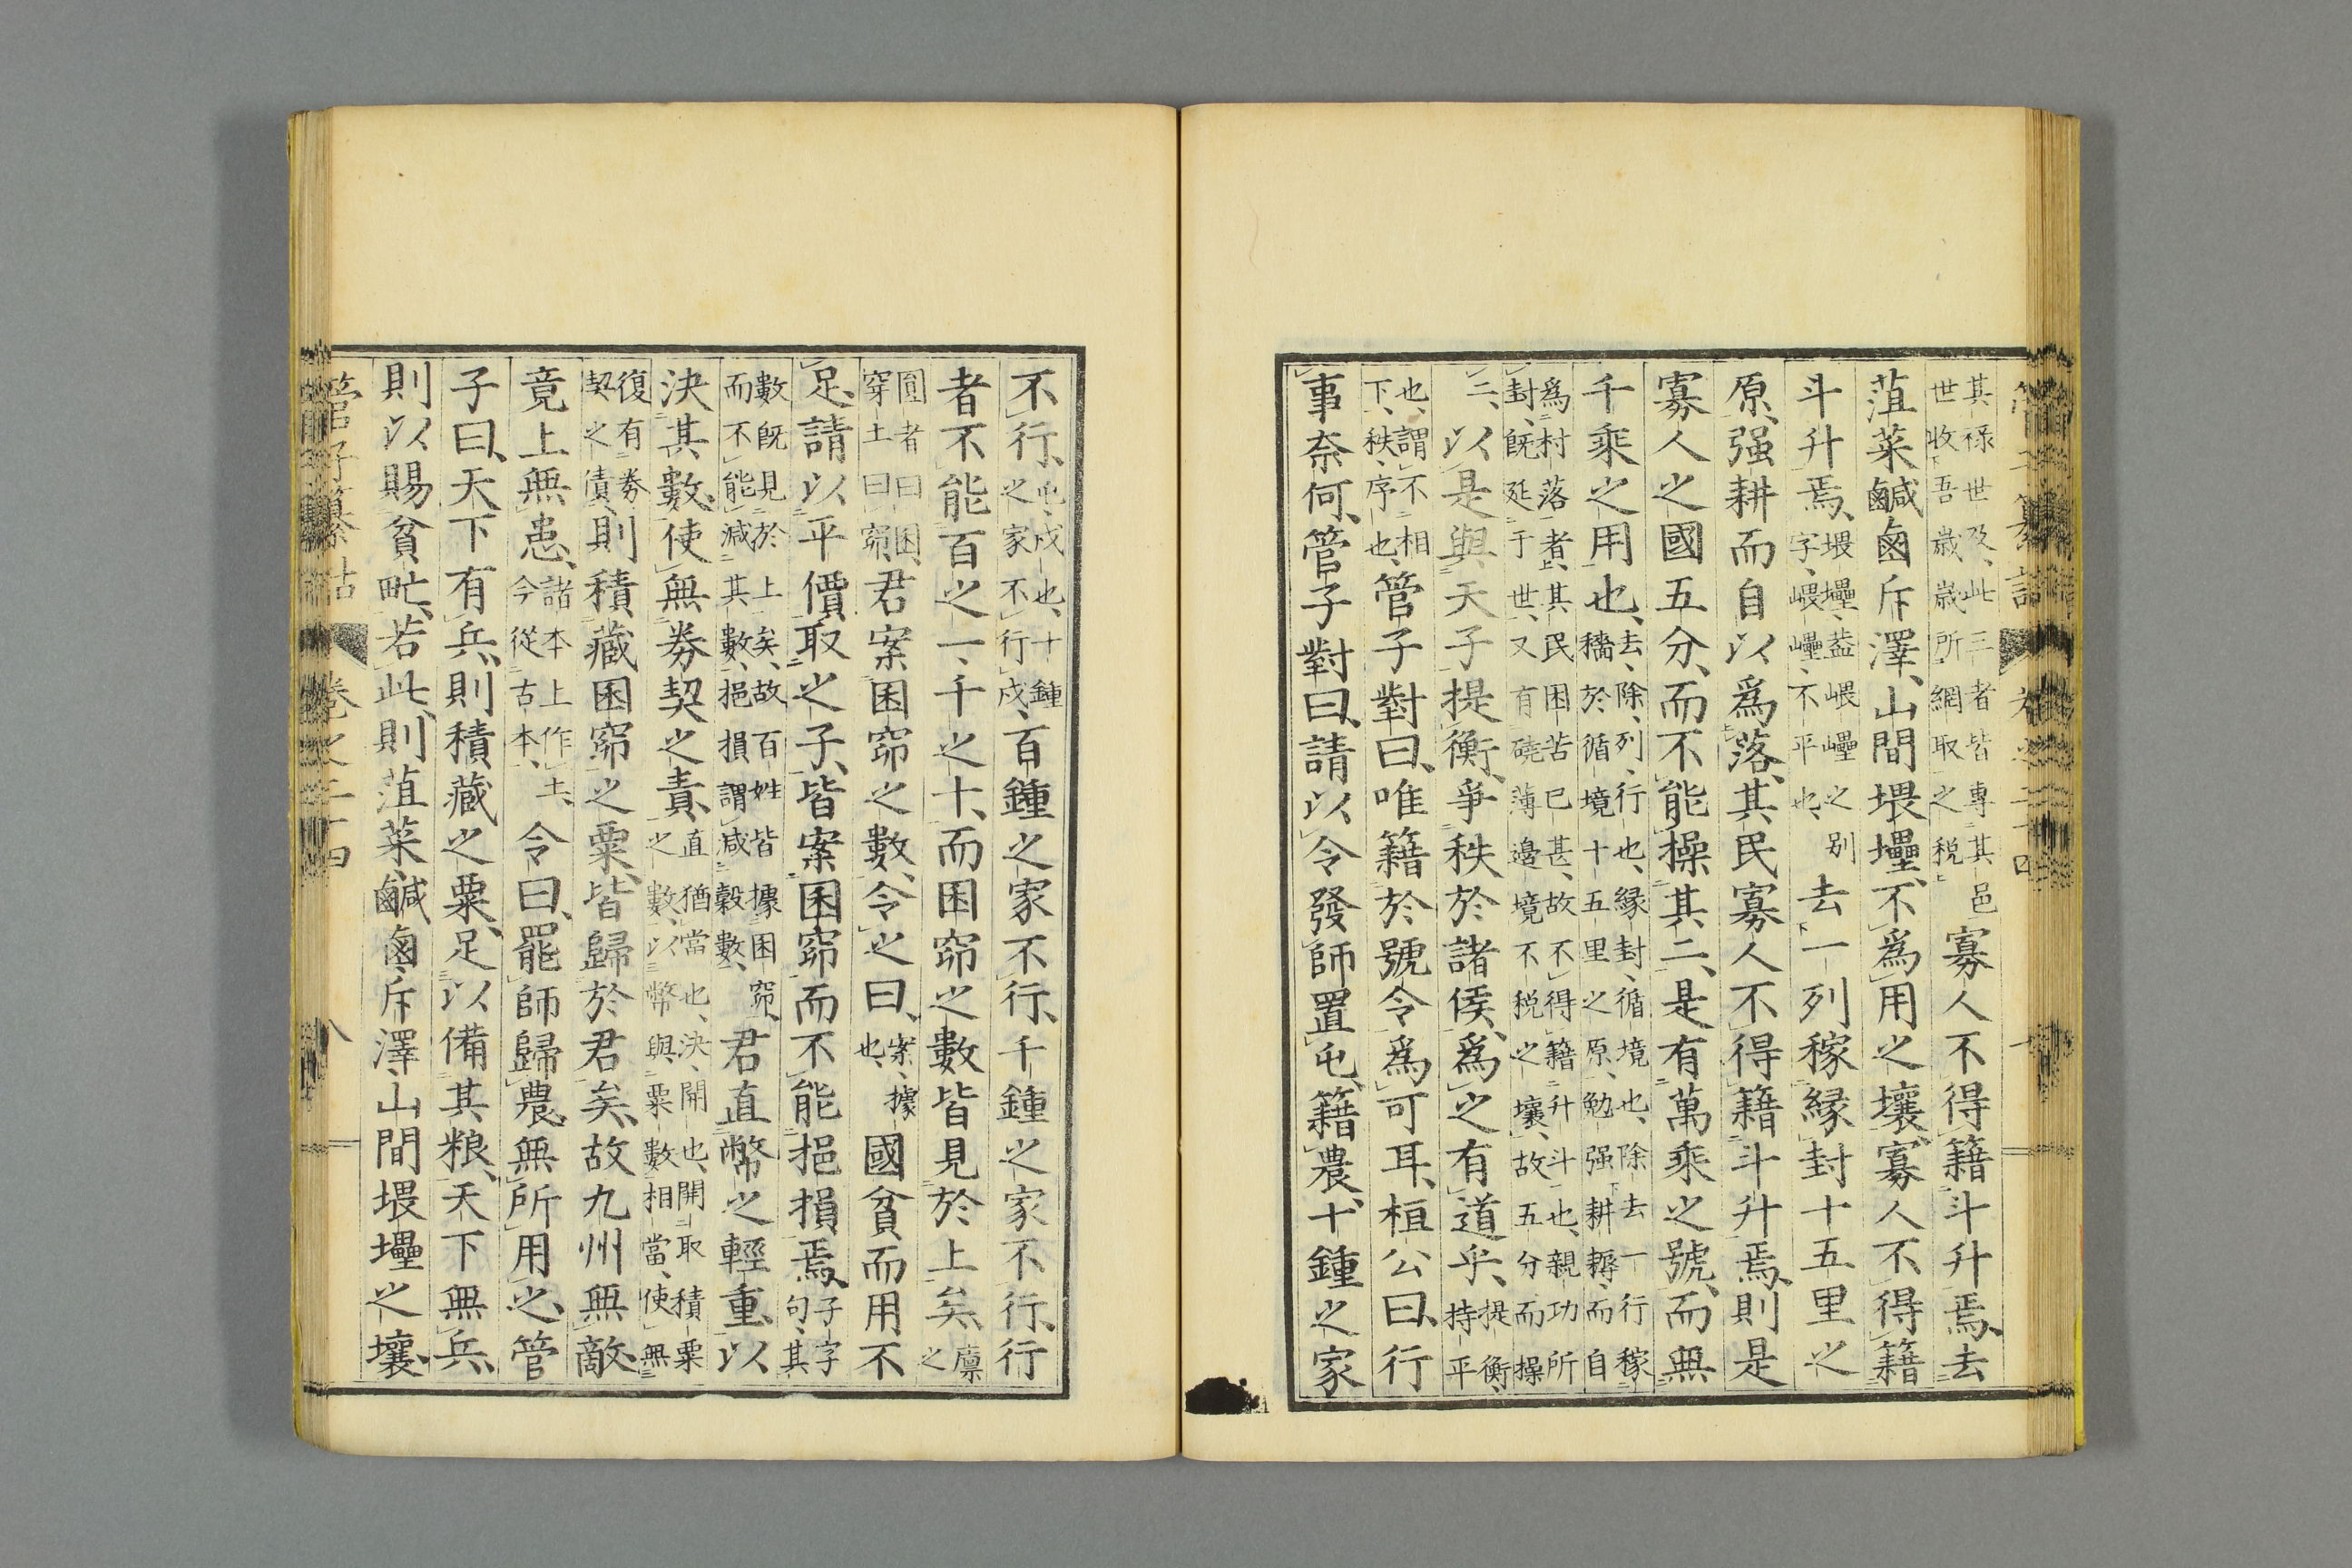 其祿世及、此三者皆專其邑
世收吾歲歲所網取之税
寡人不得籍斗升焉、去
菹菜鹹鹵斥澤、山間㙗壘、不爲用之壤、寡人不得籍
斗升焉、
㙗壘、蓋嵔壘之別
字、嵔壘、不平也、
去一列稼縁封十五里之
原、强耕而自以爲落、其民寡人不得籍斗升焉、則是
寡人之國五分、而不能操其二、是有萬乘之號、而無
千乘之用也、
去、除、列、行也、縁封、循境也、除去一行稼
穡於循境十五里之原、勉强耕耨、而自
爲村落者、其民困苦已甚、故不得籍升斗也、親功所
封、既延于世、又有磽薄邊境不税之壤、故五分而操
二、以是與天子提衡、爭秩於諸侯、爲之有道乎、
提衡、
持平
也、謂不相
下、秩、序也、
管子對曰、唯籍於號令爲可耳、桓公曰、行
事奈何、管子對曰、請以令發師置屯籍農、十鍾之家
不行、
屯、戍也、十鍾
之家不行戍、
百鍾之家不行、千鍾之家不行、行
者不能百之一、千之十、而囷窌之數皆見於上矣、
廩之
圓者曰囷、
穿土曰窌、
君案囷窌之數、令之曰、
案、據
也、
國貧而用不
足、請以平價取之子、皆案囷窌而不能挹損焉、
子字
句、其
數既見於上矣、故百姓皆據囷窌、
而不能減其數、挹損謂減穀數、
君直幣之輕重、以
決其數、使無券契之責、
直猶當也、決、開也、開取積粟
之數、以幣與粟數相當、使無
復有券
契之債、
則積藏囷窌之粟、皆歸於君矣、故九州無敵、
竟上無患、
諸本上作土、
今從古本、
令曰、罷師歸農、無所用之、管
子曰、天下有兵、則積藏之粟、足以備其粮、天下無兵、
則以賜貧甿、若此、則菹菜、鹹鹵、斥澤、山間㙗壘之壤、
管子纂詁 卷之二十四 八